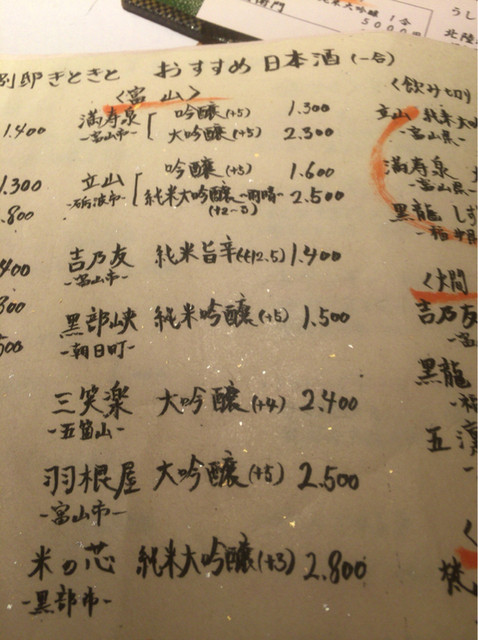 純米大吟醸 1合
5000円
うし
北陸
別邸きときと おすすめ日本酒(一合)
<富山>
満寿泉 吟醸(+5) 1.300
-富山市- 大吟醸(+5) 2.300
立山 吟醸(+5) 1.600
-砺波市- 純米大吟醸-雨晴- 2.500
(+2~3)
吉乃友 純米旨辛(+12.5) 1.400
-富山市-
黒部峡 純米吟醸(+5) 1.500
-朝日町-
三笑楽 大吟醸(+4) 2.400
-五箇山-
羽根屋 大吟醸(+5) 2.500
-富山市-
米の芯 純米大吟醸(+3) 2.800
-黒部市-
1.400
1.300
.800
400
300
<飲み切り
立山 純米大
-富山県-
満寿泉
-富山県-
黒龍 しず
-福井
吉乃友
黒龍
五凛